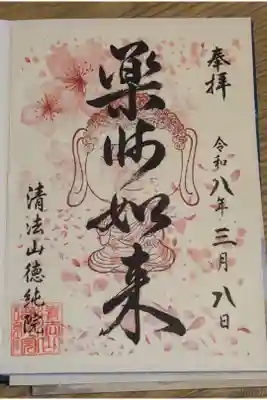 奉拝
令和八年三月八日
薬师如来
清法山徳純院